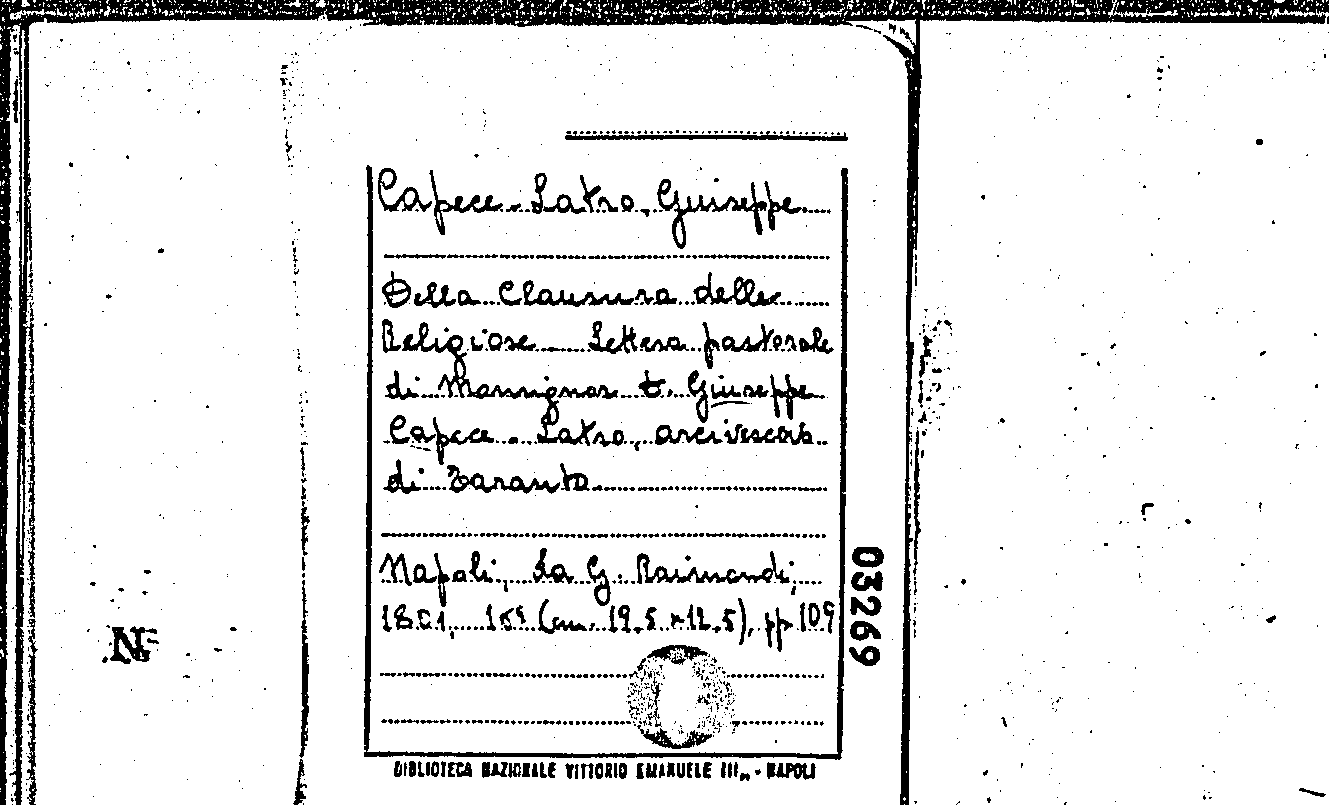 Capece-Latro, Giuseppe
Della Clausura delle
Religiose Lettera pastorale
di Monsignor Giuseppe
Capece-Latro, arcivescovo
di Taranto
Napoli, G. Raimondi,
1801, (cm. 19.5 x 12.5), pp 109
03269
BIBLIOTECA NAZIONALE VITTORIO EMANUELE III - NAPOLI